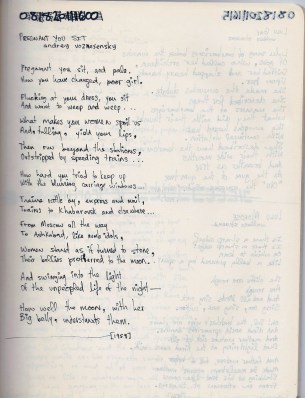 PREGNANT YOU SIT
andrey voznesensky
Pregnant you sit, and pale.
How you have changed, poor girl.
Plucking at your dress, you sit
And want to weep and weep...
What makes you women spoil us
And, falling, yield your lips,
Then run beyond the stations,
Outstripped by speeding trains...
How hard you tried to keep up
With the blurring carriage windows...
Trains rattle by, express and mail,
Trains to Khabarovsk and elsewhere...
From Moscow all the way
To Ashkhabad, like numb idols,
Women stand as if turned to stone,
Their bellies proffered to the moon.
And swinging into the light
Of the unpeopled life of the night—
How well the moon, with her
Big belly, understands them.
[1958]